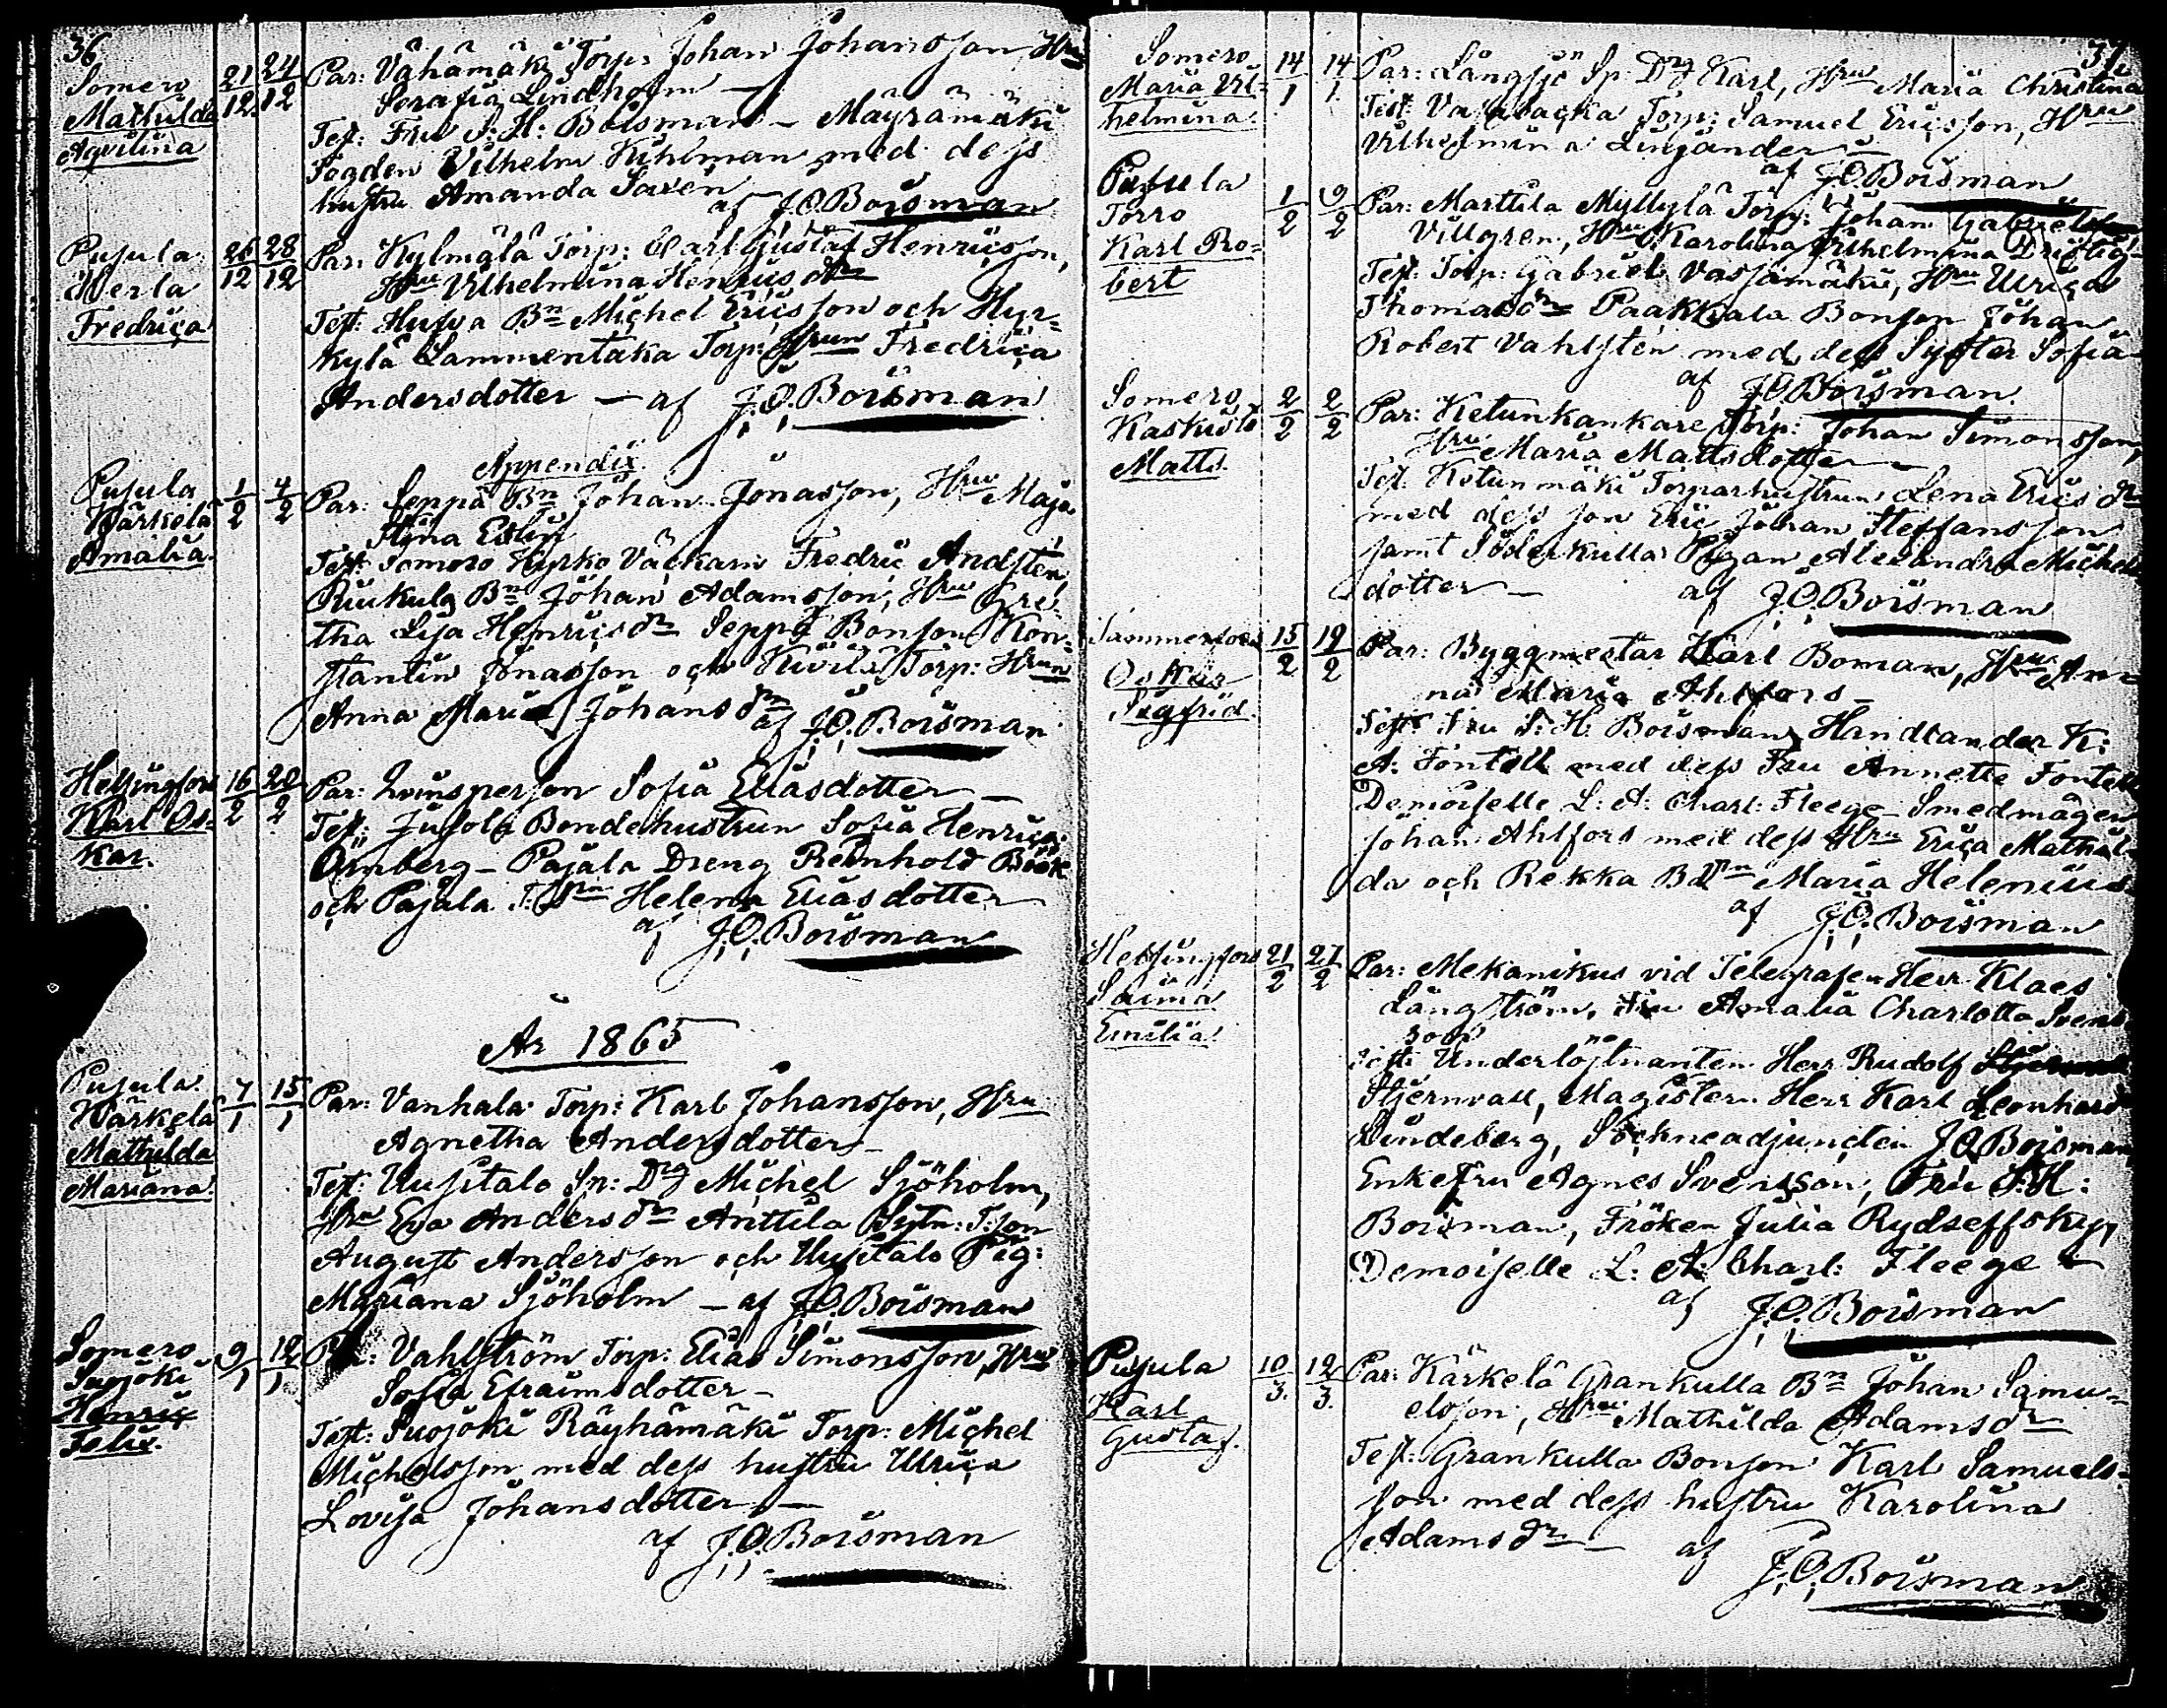 36
Somero
Mathilda
Aqvilina
21/12 24/12
Par: Vähämäki Torp: Johan Johansson, Hru
Serafia Lindholm —
Test: Fru S: H: Boisman — Mäyrämäki
Fogden Vilhelm Kihlman med dess
hustru Amanda Saxén —
af J.O. Boisman
Pusula
Herla
Fredrica
26/12 28/12
Par: Kylmälä Torp: Carl Gustaf Henricsson,
Hru Vilhelmina Henricsdr
Test: Hirva Bn Michel Ericsson och Hyr-
kylä Lammentaka Torp: Hrun Fredrica
Andersdotter — af J.O. Boisman
Appendix
Pusula
Kärkelä
Amalia
1/2 4/2
Par: Seppä Bn Johan Jonasson, Hru Maja
Stina Eslin
Test: Somero Kyrko Väckarn Fredric Andstén,
Bn Johan Adamsson, Hru Gre-
tha Lisa Henricsdr Seppä Bonson Kon-
stantin Jonasson och Kivilä Torp: Hrun
Anna Maria Johansdr
af J.O. Boisman
Helsingfors
Karl Os-
kar.
16/2 28/2
Par: Qvinsperson Sofia Eliasdotter —
Test: Jusola Bondehustrun Sofia Henrica
Örnberg — Pajala Dreng Reinhold Böök
och Pajala Helena Eliasdotter
af J.O. Boisman
År 1865
Pusula
Kärkelä
Mathilda
Mariana
7/1 15/1
Par: Vanhala Torp: Karl Johansson, Hru
Agnetha Andersdotter —
Test: Uusitalo Sp: Drg Michel Sjöholm,
Hru Eva Andersdr Anttila Sytn: T:son
August Andersson och Uusitalo Pig:
Mariana Sjöholm — af J.O. Boisman
Somero
Suojoki
Henric
Felix
9/1 12/1
Par: Vahlström Torp: Elias Simonsson, Hru
Sofia Efraimsdotter —
Test: Suojoki Räyhämäki Torp: Michel
Michelsson med dess hustru Ulrica
Lovisa Johansdotter —
af J.O. Boisman
37
Somero
Maria Vil-
helmina
14/1 14/1
Par: Långsjö Sp: Drg Karl, Hru Maria Christina
Test: Torp: Samuel Ericsson, Hru
Vilhelmina Linjander —
af J.O. Boisman
Pusula
Torro
Karl Ro-
bert
1/2 9/2
Par: Marttila Myllylä Torp: Johan Gabrielsson
Villgren, Hru Karolina Vilhelmina
Test: Torp: Gabriel Vassamäki, Hru Ulrica
Thomasdr Paakkala Bonson Johan
Robert Vahlstén med dess Syster Sofia
af J.O. Boisman
Somero
Kaskisto
Matts
2/2 2/2
Par: Ketunkankare Torp: Johan Simonsson,
Hru Maria Mattsdotter —
Test: Ketunmäki Torparhustrun Lena Ericsdr
med dess son Eric Johan Steffansson
samt Söderkulla Pigan Alexandra Michels
dotter — af J.O. Boisman
Oskar
Sigfrid
15/2 19/2
Par: Byggmestar Karl Boman, Hru An-
na Maria Ahlfors —
Test: Fru S: H: Boisman, Handlanden K:
A: Fontell med dess Fru Annette Fontell
Demoiselle L: A: Charl: Fleege — Smedmågen
Johan Ahlfors med dess Hru Erica Mathil-
da och Rekka Maria Helenius
af J.O. Boisman
Helsingfors
Saima
Emilia
21/2 27/2
Par: Mekanikus vid Telegrafen Herr Klaes
Långström, Fru Amalia Charlotta Svens
son
Test: Underlöjtnanten Herr Rudolf
Stjernvall, Magistern Herr Karl Leonhard
Lindeberg, Sockneadjuncten J.O. Boisman
Enkefru Agnes Svensson, Fru S: H:
Boisman, Fröken Julia Rydseffsky,
Demoiselle L: A: Charl: Fleege —
af J.O. Boisman
Pusula
Karl
Gustaf.
10/3. 12/3.
Par: Kärkelä Grankulla Bn Johan Samu-
elsson, Hru Mathilda Adamsdr
Test: Grankulla Bonson Karl Samuels-
son med dess hustru Karolina
Adamsdr — af
J.O. Boisman